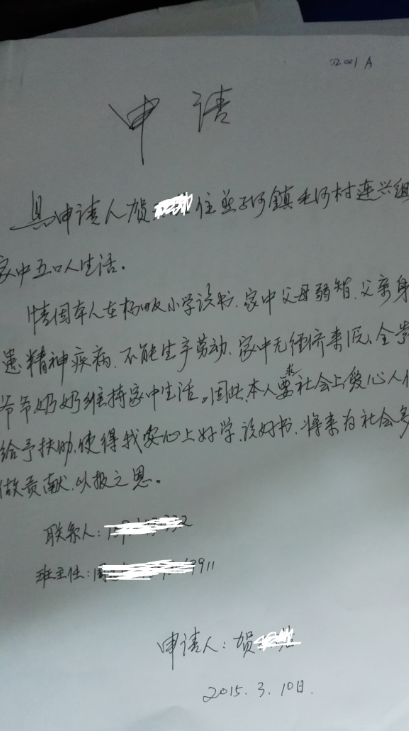 2001 A
申请
具申请人贺 住 河镇毛河村连兴组
家中五口人生活。
情因本人在杨 小学读书.家中父母弱智.父亲身
患精神疾病.不能生产劳动.家中无经济来源.全靠
爷爷奶奶维持家中生活。因此本人要求社会上爱心人
给予扶助.使得我安心上好学读好书.将来为社会多
做贡献.以报之恩。
联系人: 332
班主任: 7911
申请人: 贺
2015.3.10日.